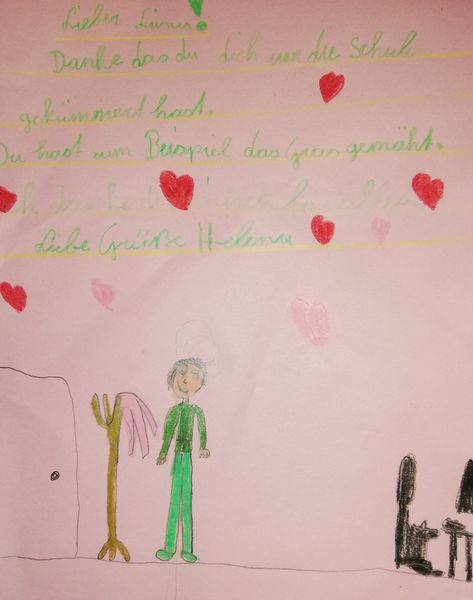 Lieber Linus!
Danke das du dich um die Schule
gekümmert hast.
Du hast zum Beispiel das Gras gemäht.
danke einfach für alles
Liebe Grüße Helena